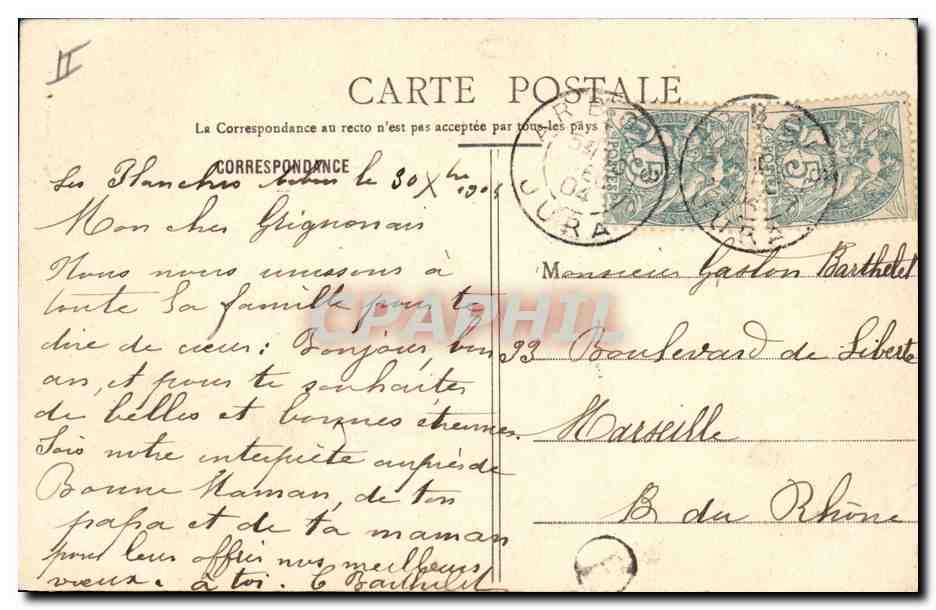 II
CARTE POSTALE
La Correspondance au recto n'est pas acceptée par tous les pays
CORRESPONDANCE
Les Planches le 30 Xbre 1904
Mon cher Grignonais
Nous nous unissons à
toute la famille pour te
dire de cœur: Bonjour, bon
an, et pour te souhaiter
de belles et bonnes étrennes.
Sois notre interprète auprès de
Bonne Maman, de ton
papa et de ta maman
pour leur offrir nos meilleurs
vœux. à toi. C Barthelet
ARBOIS
04
JURA
5
JURA
5
Monsieur Gaston Barthelet
33 Boulevard de Liberté
Marseille
B du Rhône
CPAPHIL